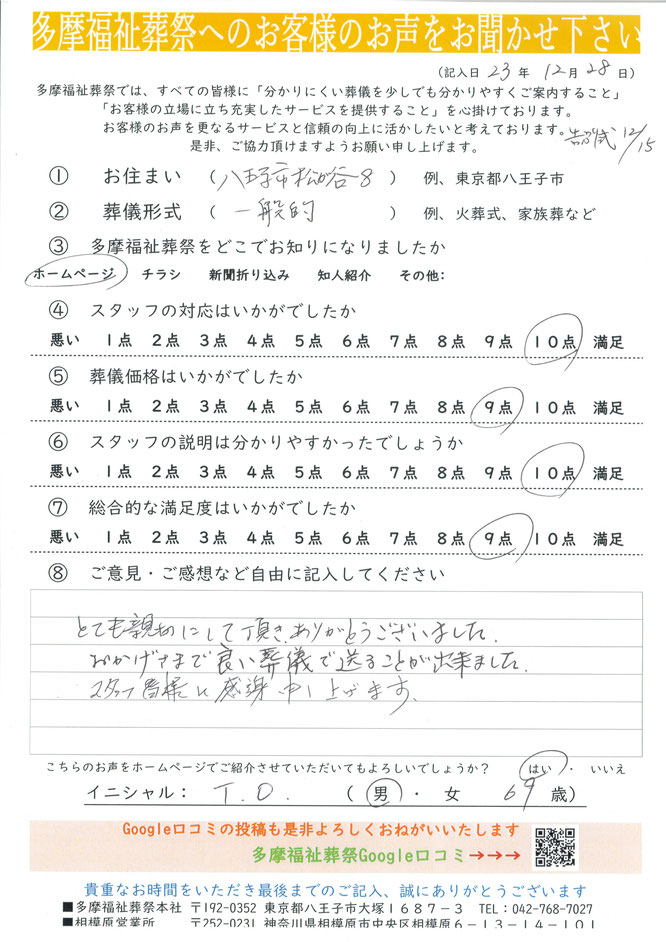 多摩福祉葬祭へのお客様のお声をお聞かせ下さい
(記入日 23 年 12月 28 日)
多摩福祉葬祭では、すべての皆様に「分かりにくい葬儀を少しでも分かりやすくご案内すること」
「お客様の立場に立ち充実したサービスを提供すること」を心掛けております。
お客様のお声を更なるサービスと信頼の向上に活かしたいと考えております。
是非、ご協力頂けますようお願い申し上げます。
告別式 12/15
① お住まい (八王子市松が谷8) 例、東京都八王子市
② 葬儀形式 (一般的) 例、火葬式、家族葬など
③ 多摩福祉葬祭をどこでお知りになりましたか
ホームページ チラシ 新聞折り込み 知人紹介 その他:
④ スタッフの対応はいかがでしたか
悪い 1点 2点 3点 4点 5点 6点 7点 8点 9点 10点 満足
⑤ 葬儀価格はいかがでしたか
悪い 1点 2点 3点 4点 5点 6点 7点 8点 9点 10点 満足
⑥ スタッフの説明は分かりやすかったでしょうか
悪い 1点 2点 3点 4点 5点 6点 7点 8点 9点 10点 満足
⑦ 総合的な満足度はいかがでしたか
悪い 1点 2点 3点 4点 5点 6点 7点 8点 9点 10点 満足
⑧ ご意見・ご感想など自由に記入してください
とても親切にして頂き、ありがとうございました。
おかげさまで良い葬儀で送ることが出来ました。
スタッフ皆様に感謝申し上げます。
こちらのお声をホームページでご紹介させていただいてもよろしいでしょうか? はい ・ いいえ
イニシャル: T.O. (男 ・ 女 69 歳)
Google口コミの投稿も是非よろしくおねがいいたします
多摩福祉葬祭Google口コミ→→→
貴重なお時間をいただき最後までのご記入、誠にありがとうございます
■多摩福祉葬祭本社 〒192-0352 東京都八王子市大塚1687-3 TEL:042-768-7027
■相模原営業所 〒252-0231 神奈川県相模原市中央区相模原6-13-14-101